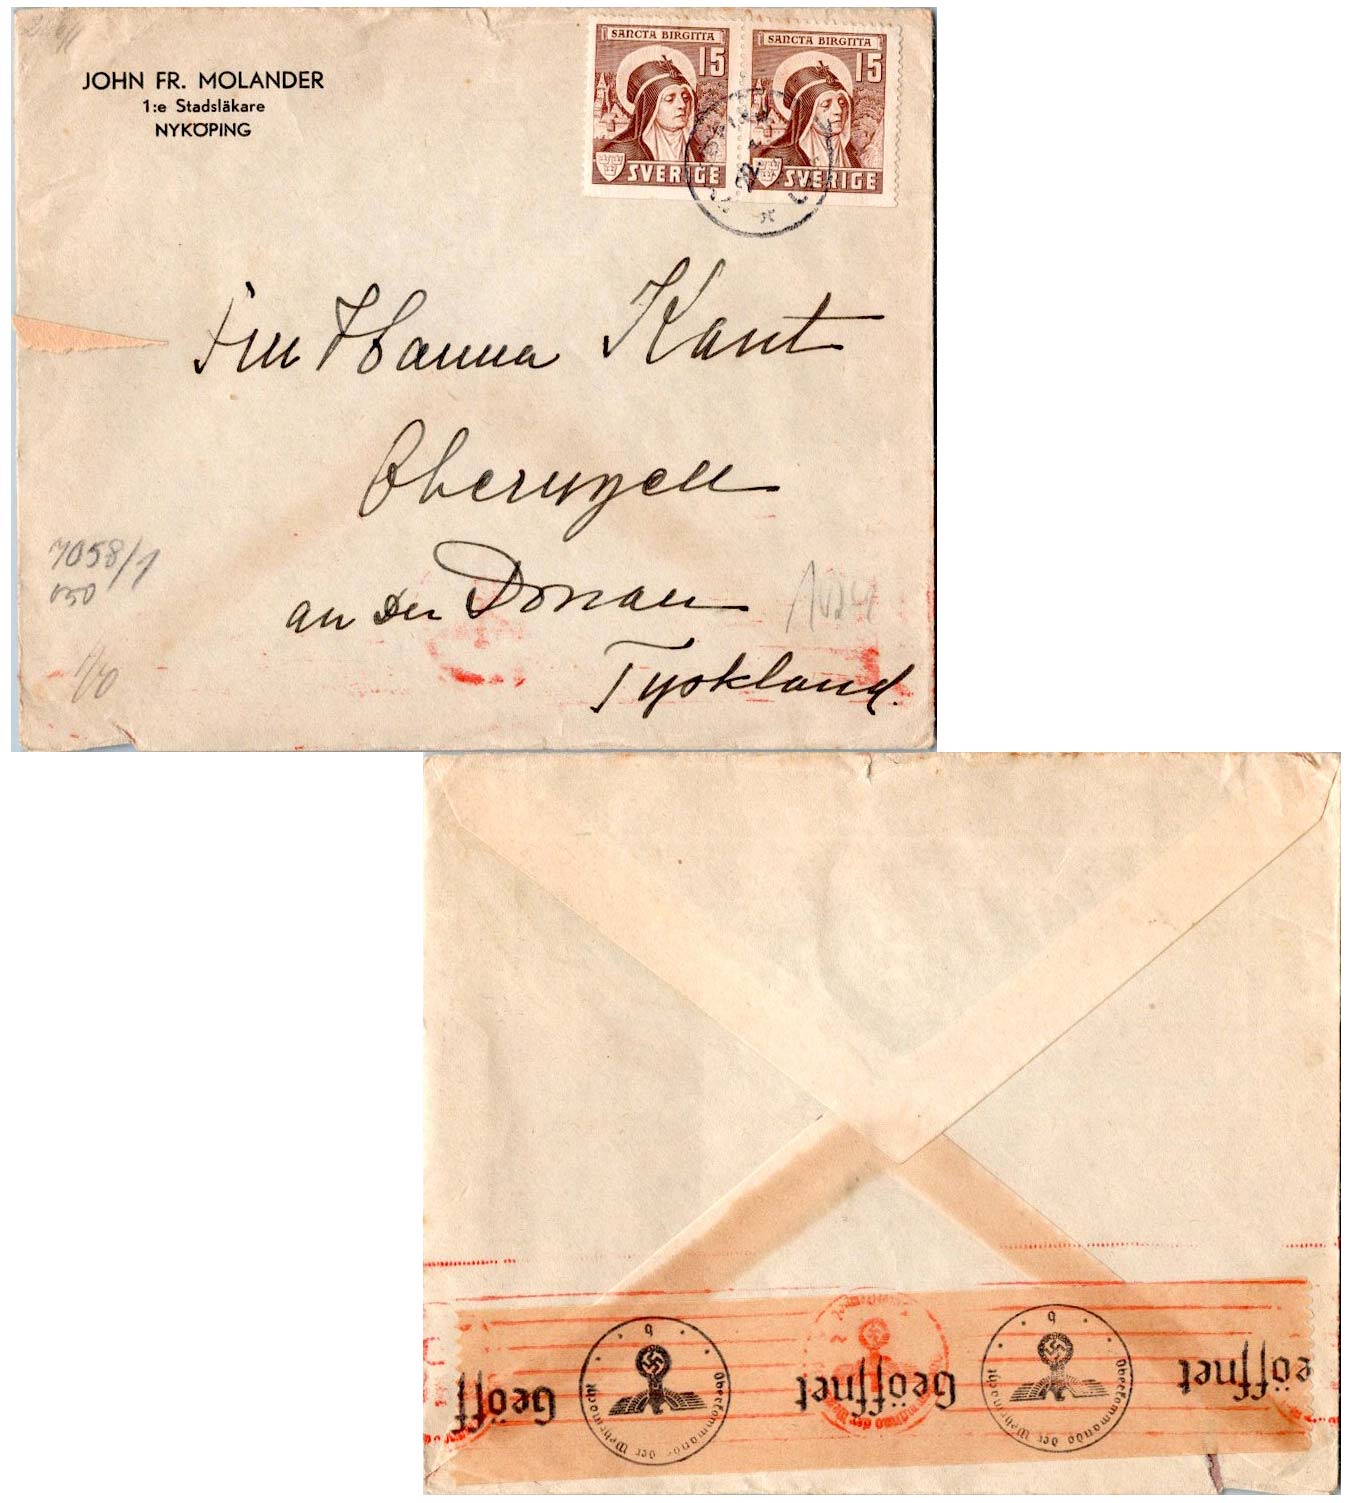 JOHN FR. MOLANDER
1:e Stadsläkare
NYKÖPING
SANCTA BIRGITTA
15
SVERIGE
SANCTA BIRGITTA
15
SVERIGE
22
Hanna Kant
Obernzell
an der Donau
Tyskland.
7058/1
Geöff
b
Oberkommando der Wehrmacht
Geöffnet
b
Oberkommando der Wehrmacht
eöffnet